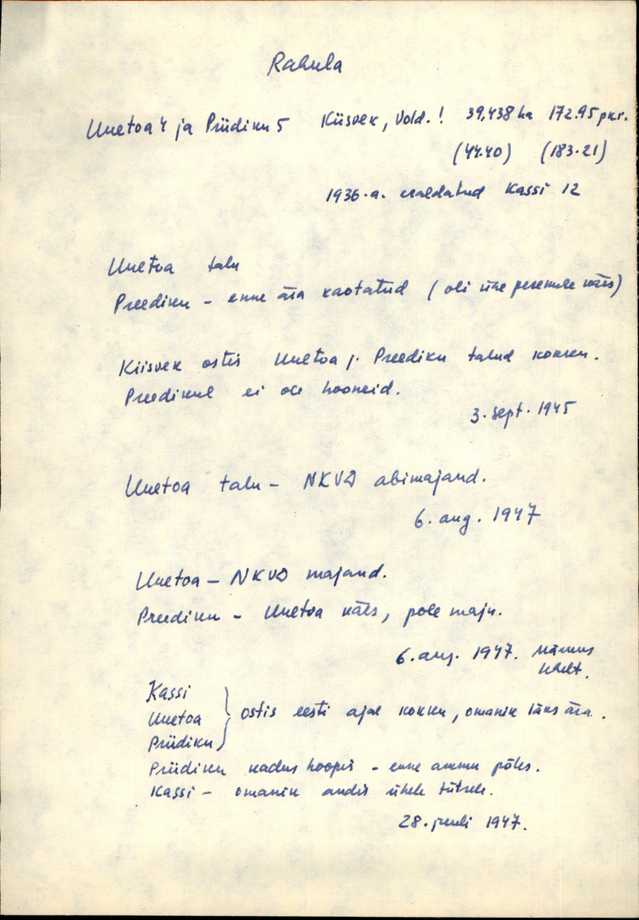 Rahula
Uuetoa 4 ja Priidiku 5 Kiisvek, Vold.! 39,438 ha 172.95 pkr.
(44.40) (183.21)
1936.a. eraldatud Kassi 12
Uuetoa talu
Preediku - enne ära kaotatud (oli ühe peremehe käes)
Kiisvek ostis Uuetoa j. Preediku talud kokku.
Preedikul ei ole hooneid.
3. sept. 1945
Uuetoa talu - NKVD abimajand.
6. aug. 1947
Uuetoa - NKVD majand.
Preediku - Uuetoa käes, pole maju.
6. aug. 1947.
Kassi
Uuetoa
Priidiku
ostis eesti ajal kokku, omanik läks ära.
Priidiku kadus hoopis - enne ammu põles.
Kassi - omanik andis ühele tütrele.
28. juuli 1947.